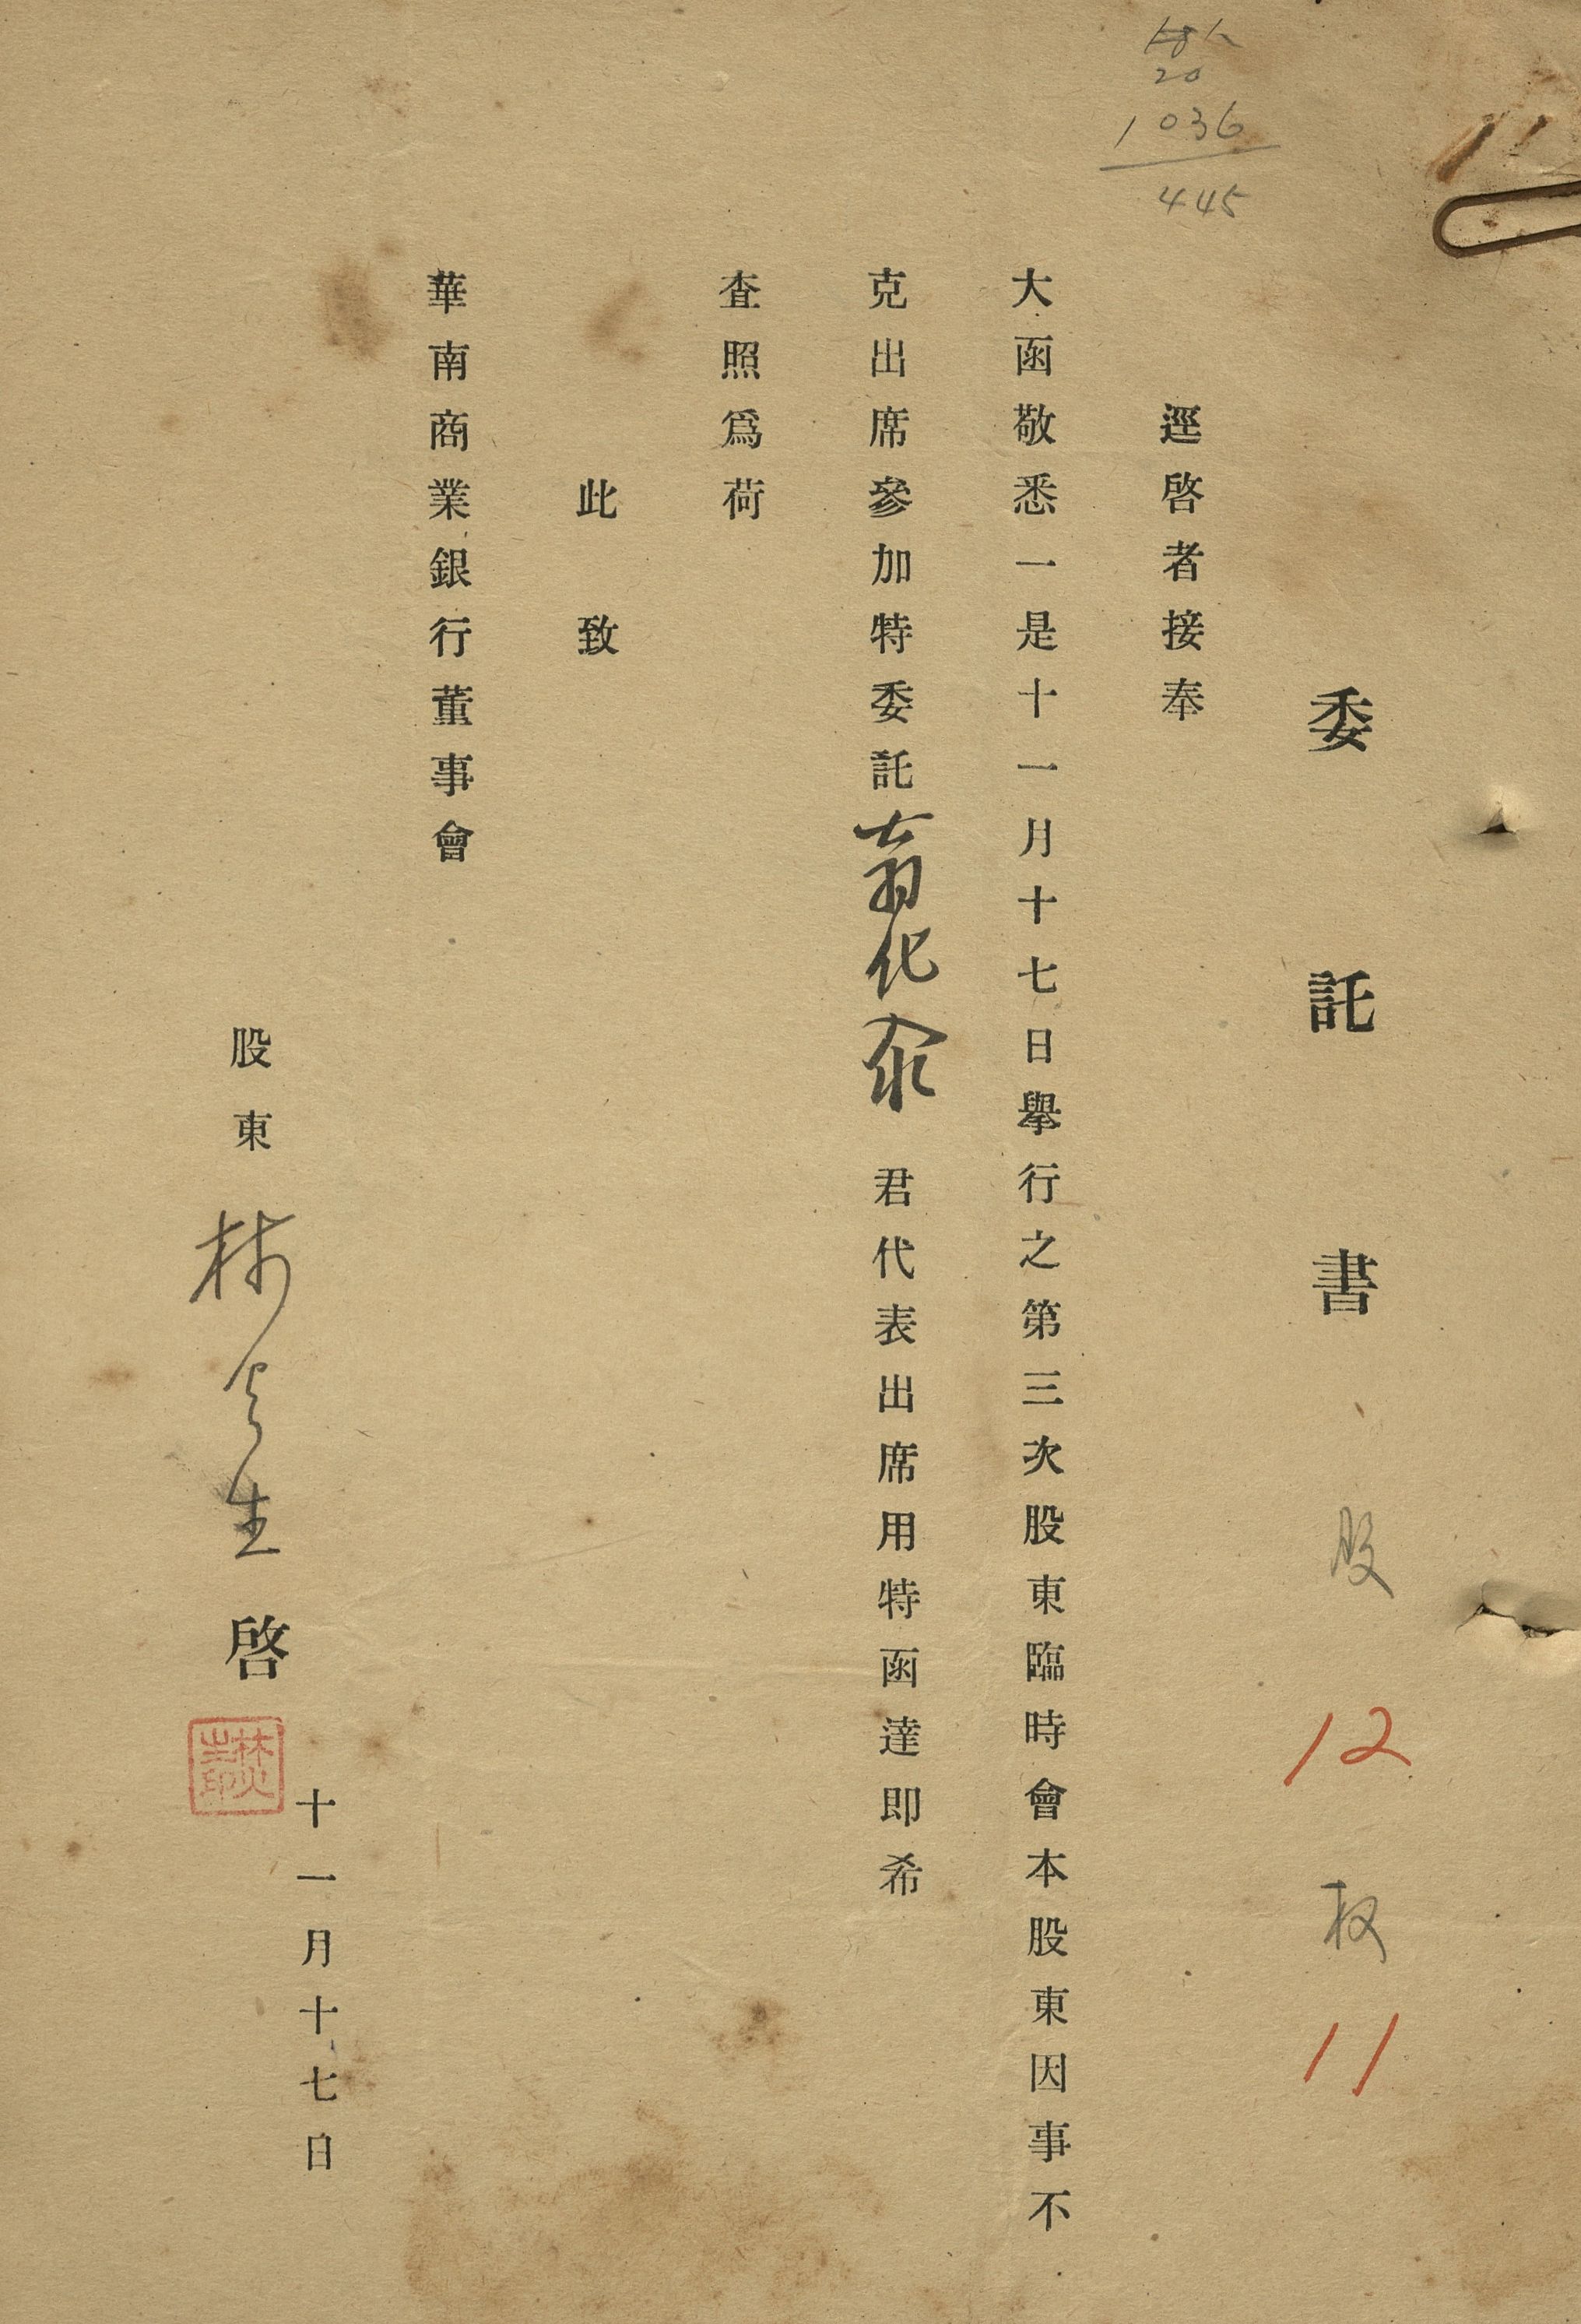 委託書 股 12 权 11
20
1036
445
逕啓者接奉
大函敬悉一是十一月十七日舉行之第三次股東臨時會本股東因事不
克出席參加特委託 君代表出席用特函達即希
査照爲荷
此致
華南商業銀行董事會
十一月十七日
股東 林火生 啓
林火生印